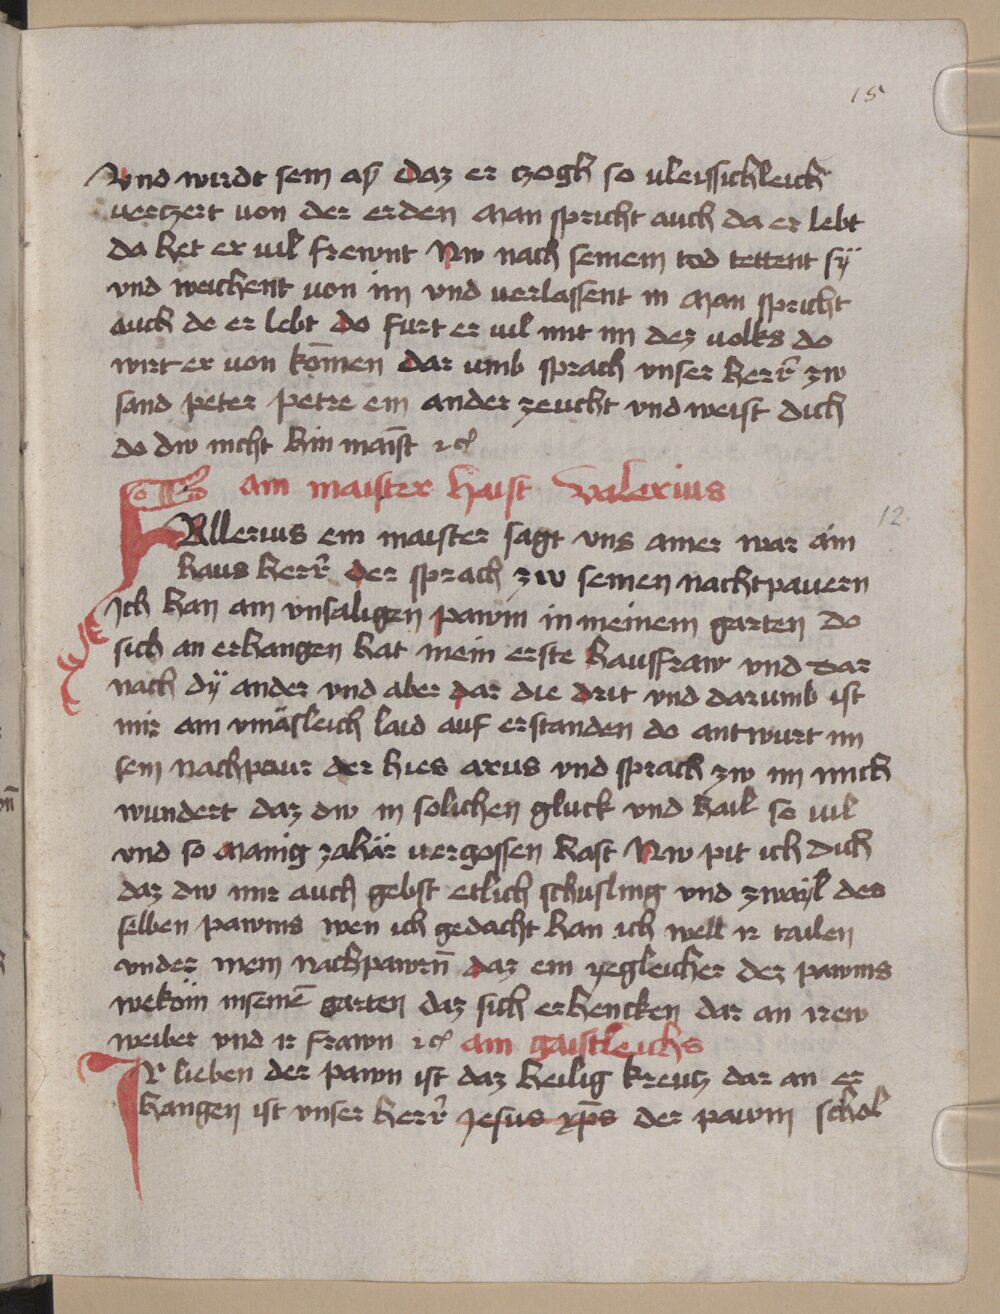 15
Vnd wirdt sein ay daz er tzogk so vleissichleich
vertzert von der erden Man spricht auch da er lebt
do het er vil frewnt Nw nach seinem tod tettent sÿ
vnd weichent von im vnd verlassent in Man spricht
auch de er lebt do furt er vil mit im dez volks do
wirt er von kōmen dar vmb sprach vnser herr̄ zw
sand peter Petre ein ander zeucht vnd weist dich
do dw nicht hin maīst ꝛc
am maister haist Valerius
12.
VAllerius ein maister sagt vns ainer war ain
haus herr̄ der sprach zw seinen nachtpauern
Ich han ain vnsaligen pawm in meinem garten do
sich an erhangen hat mein erste hausfraw vnd dar
nach dÿ ander vnd aber dar die drit vnd darumb ist
mir ain vmäsleich laid auf erstanden do antwurt im
sein nachpaur der hies arus vnd sprach zw im mich
wundert daz dw in solichen gluck vnd hail so vil
vnd so manig zahär vergossen hast Nw pit ich dich
daz dw mir auch gebst etlich schusling vnd zwaÿl des
selben pawms wen ich gedacht han ich well ir tailen
vnder mein nachpawrn̄ daz ein yegleicher dez pawms
weköm in seinē garten daz sich erhencken dar an irew
weiber vnd ir frawn ꝛc am gaistleichs
IR lieben der pawn ist daz heilig kreutz dar an er
hangen ist vnser herr̄ Jesus xp̄s der pawm schol